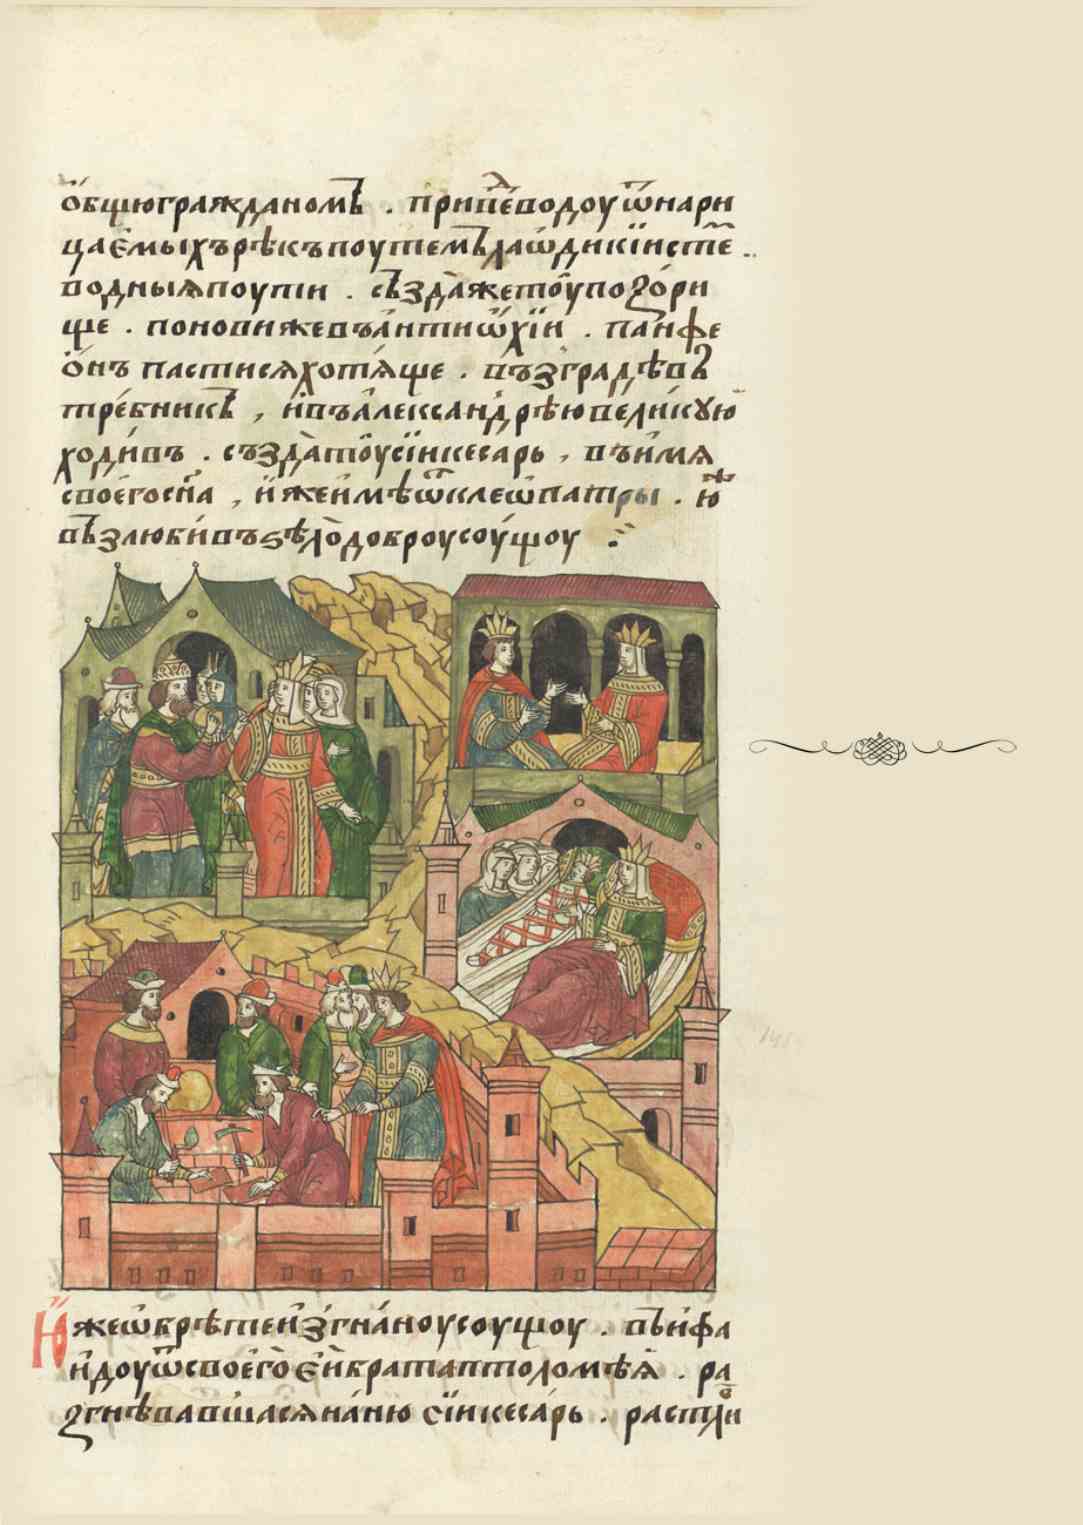 ѻбщюгражданомъ . приве́водоу ѿнари
цае́мыхърѣкъпоутемъ лаѡдикїистѣ ..
водныѧпоути . създа́жетоу позо́ри
ще . поновижевъа́нтиѡхїи . панфе
ѻ́нъ пастисѧхотѧ́ще . възградѣвъ
тре́бникъ , и҆въа҆леѯандрѣювеликꙋю
ходи́въ . създа́тоусїикеса́рь , въи҆мѧ
своего̀сн҃а , и҆жеи҆мѣ ѿклеѡпатры . ю҆
възлюби́въѕѣло̀доброусоу́щоу .
Ю҆жеѡбрѣтеи҆згна́ноусоущоу . въи҆фа
и҆доу ѿсвоего̀ е҆и҆братаптоломѣѧ . ра
згнѣвавшасѧна́ню сїикеса́рь . растли